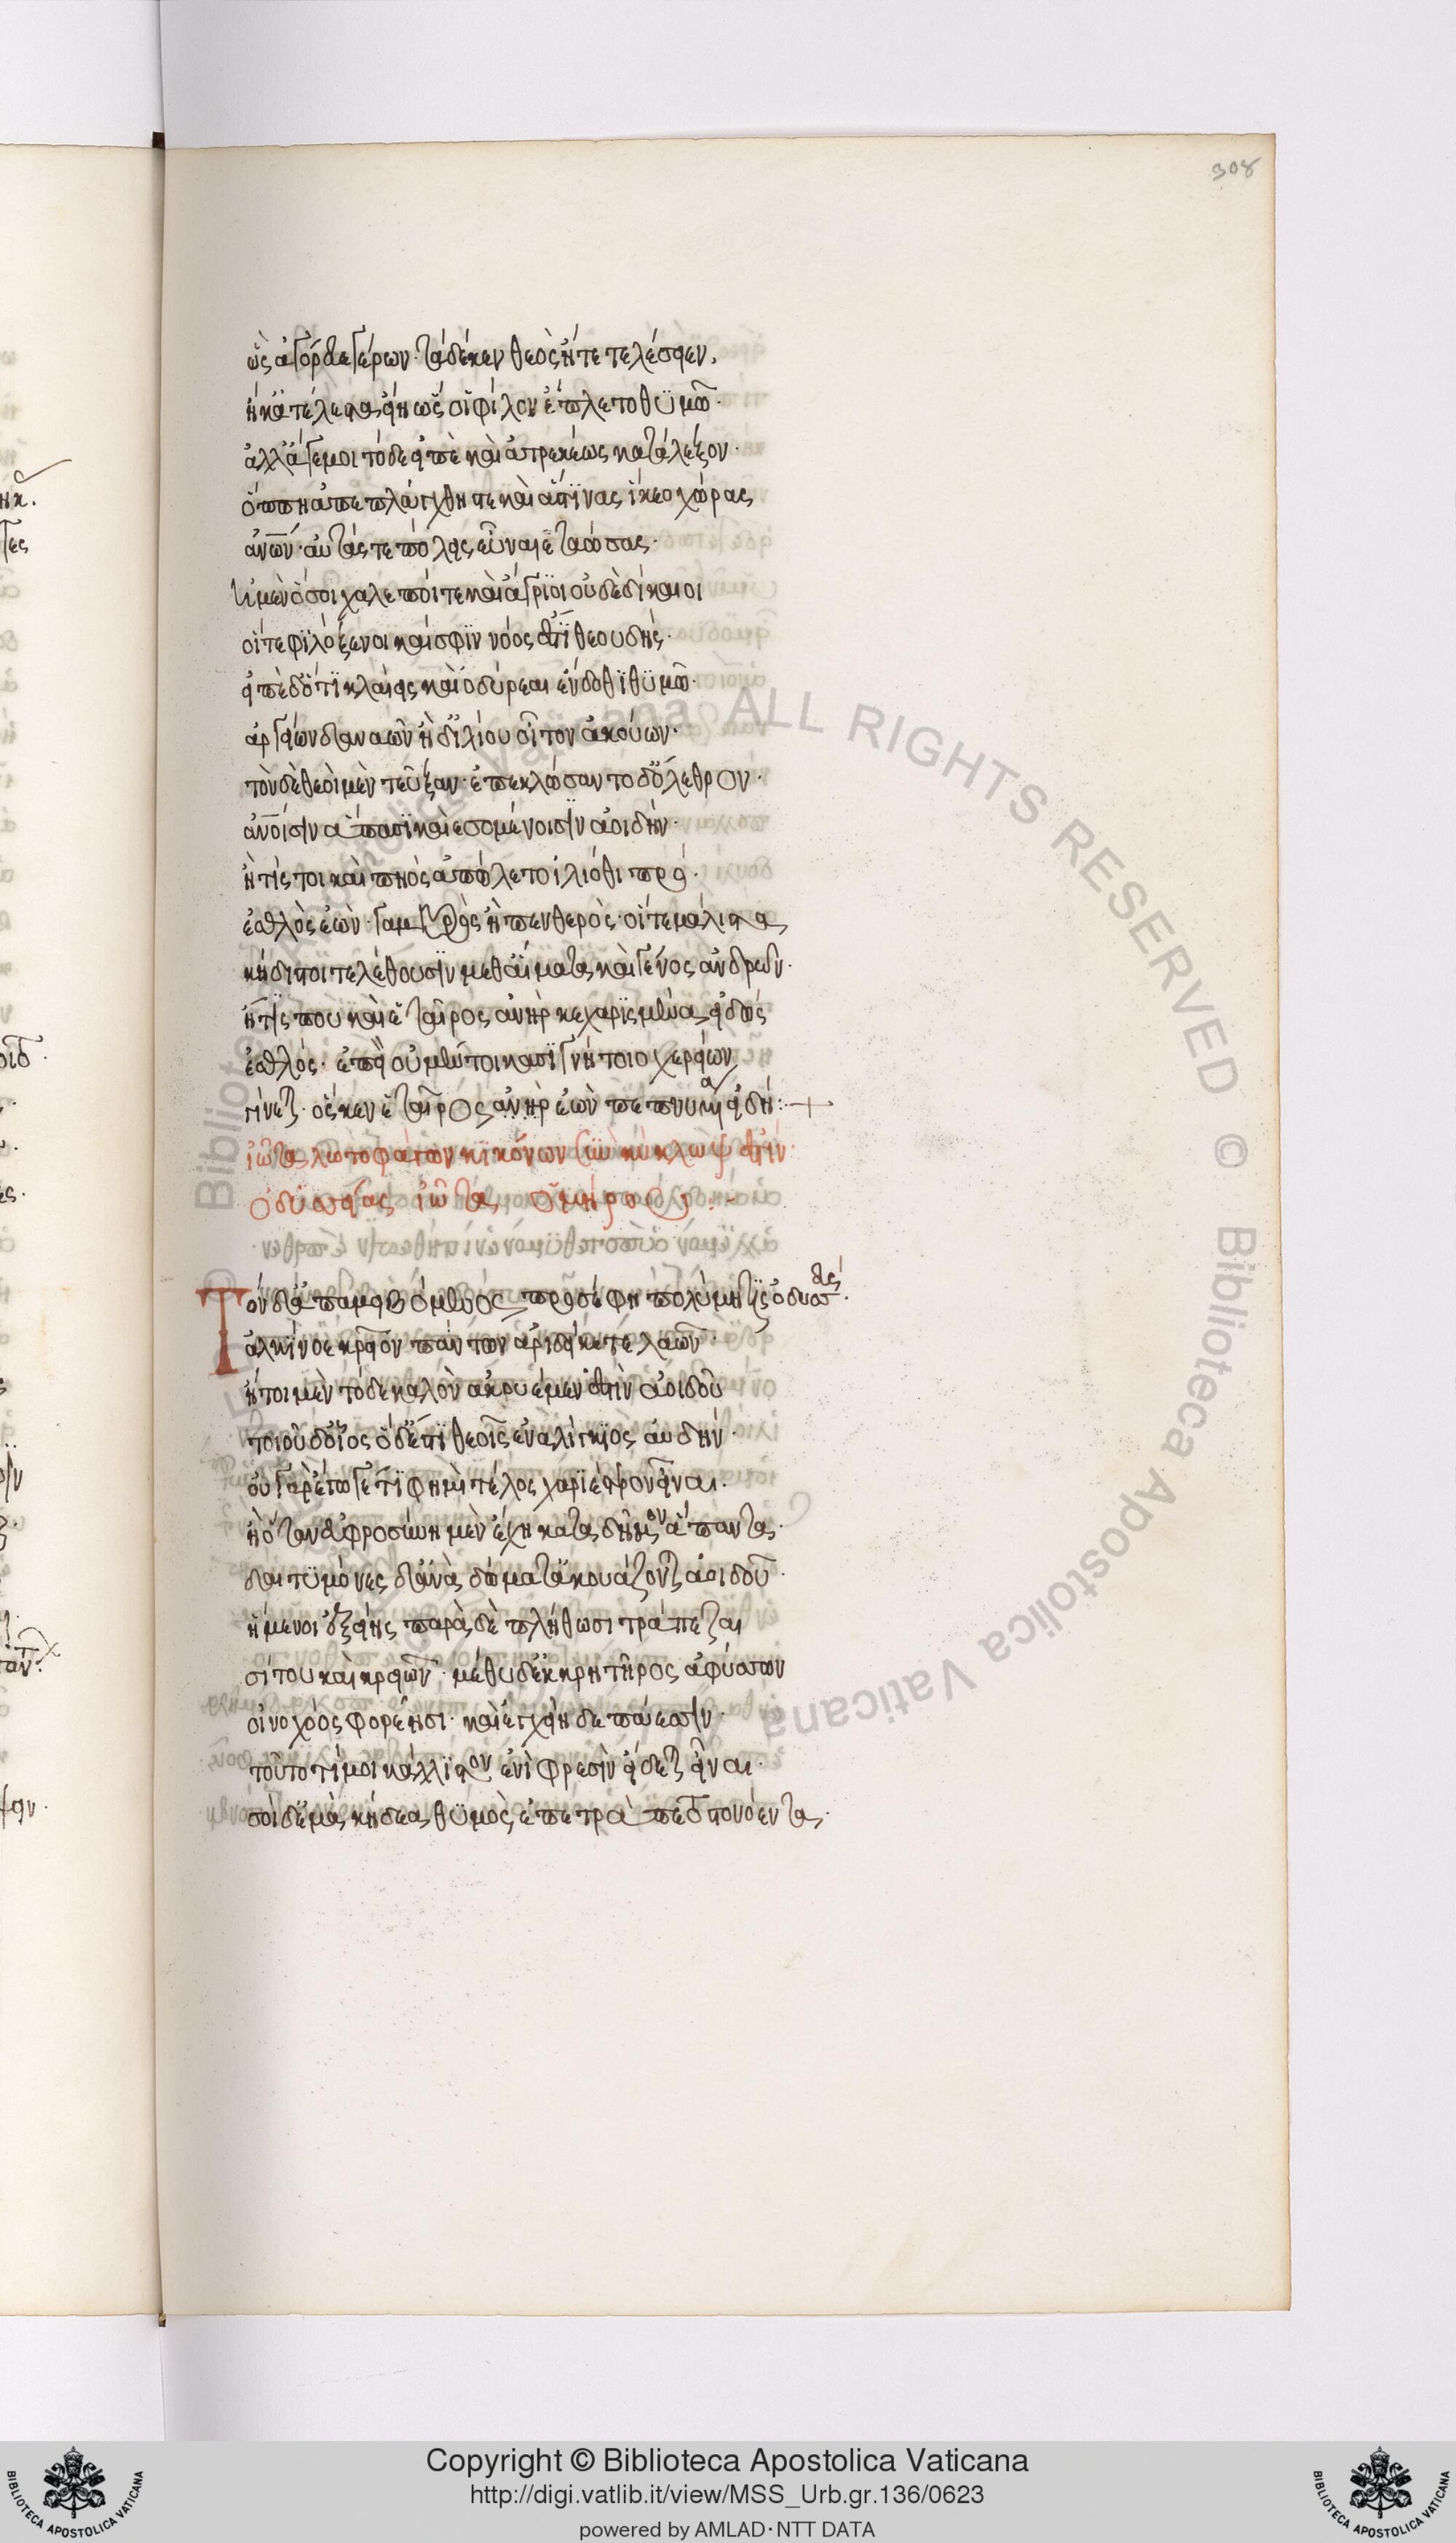 308
ὣς ἀγόρευε γέρων· τὰ δέ κεν θεὸς ἤ τε τελέσειεν,
ἤ κ' ἀτέλεστ' εἴη ὥς οἱ φίλον ἔπλετο θϋμῶ·
ἀλλ' ἄγε μοι τόδε εἰπὲ καὶ ἀτρεκέως κατάλεξον·
ὅππη ἀπεπλάγχθης τε καὶ ἅς τινας ἵκεο χώρας
ἀνων· αὐτάς τε πόλεις εὖ ναιεταώσας·
ἠμὲν ὅσοι χαλεποί τε καὶ ἄγριοι οὐδὲ δίκαιοι
οἵ τε φιλόξενοι καί σφιν νόος ἐστὶ θεουδής·
εἰπὲ δ' ὅ τι κλαίεις καὶ ὀδύρεαι ἔνδοθι θϋμῶ·
ἀργείων δαναῶν ἠδ' ἰλίου οἶτον ἀκούων·
τὸν δὲ θεοὶ μὲν τεῦξαν· ἐπεκλώσαντο δ' ὄλεθρον·
ἀνοισιν ἅπασι καὶ ἐσομένοισιν ἀοιδήν·
ἤ τίς τοι καὶ πηὸς ἀπώλετο ἰλιόθι πρό·
ἐσθλὸς ἐὼν· γαμβρὸς ἢ πενθερὸς· οἵ τε μάλιστα
κήδιστοι τελέθουσιν μεθ' αἷμά τε καὶ γένος ἀνδρῶν·
ἤ τίς που καὶ ἑταῖρος ἀνὴρ κεχαρισμένα εἰδώς
ἐσθλός· ἐπεὶ οὐ μέν τοι κασιγνήτοιο χερείων
γίνεται· ὅς κεν ἑταῖρος ἀνὴρ ἐὼν πεπνυμένα εἰδῆ:+
Τὸν δ' ἀπαμειβόμενος προσέφη πολύμητις ὀδυσσεύς·
ἀλκίνοε κρεῖον πάντων ἀριδείκετε λαῶν·
ἤτοι μὲν τόδε καλὸν ἀκουέμεν ἐστὶν ἀοιδοῦ
τοιοῦδ' οἷος ὅδ' ἐστὶ θεοῖς ἐναλίγκιος αὐδήν·
οὐ γὰρ ἔγωγέ τί φημι τέλος χαριέστερον εἶναι·
ἢ ὅταν εὐφροσύνη μὲν ἔχη κατὰ δῆμον ἅπαντας·
δαιτυμόνες δ' ἀνὰ δώματ' ἀκουάζονται ἀοιδοῦ·
ἥμενοι ἑξείης παρὰ δὲ πλήθωσι τράπεζαι
σίτου καὶ κρειῶν· μέθυ δ' ἐκ κρητῆρος ἀφύσσων
οἰνοχόος φορέησι· καὶ ἐγχείη δεπάεσσιν·
τοῦτό τί μοι κάλλιστον ἐνὶ φρεσὶν εἴδεται εἶναι·
σοὶ δ' ἐμὰ κήδεα θϋμὸς ἐπετράπετο στονόεντα·
Copyright © Biblioteca Apostolica Vaticana
http://digi.vatlib.it/view/MSS_Urb.gr.136/0623
powered by AMLAD·NTT DATA